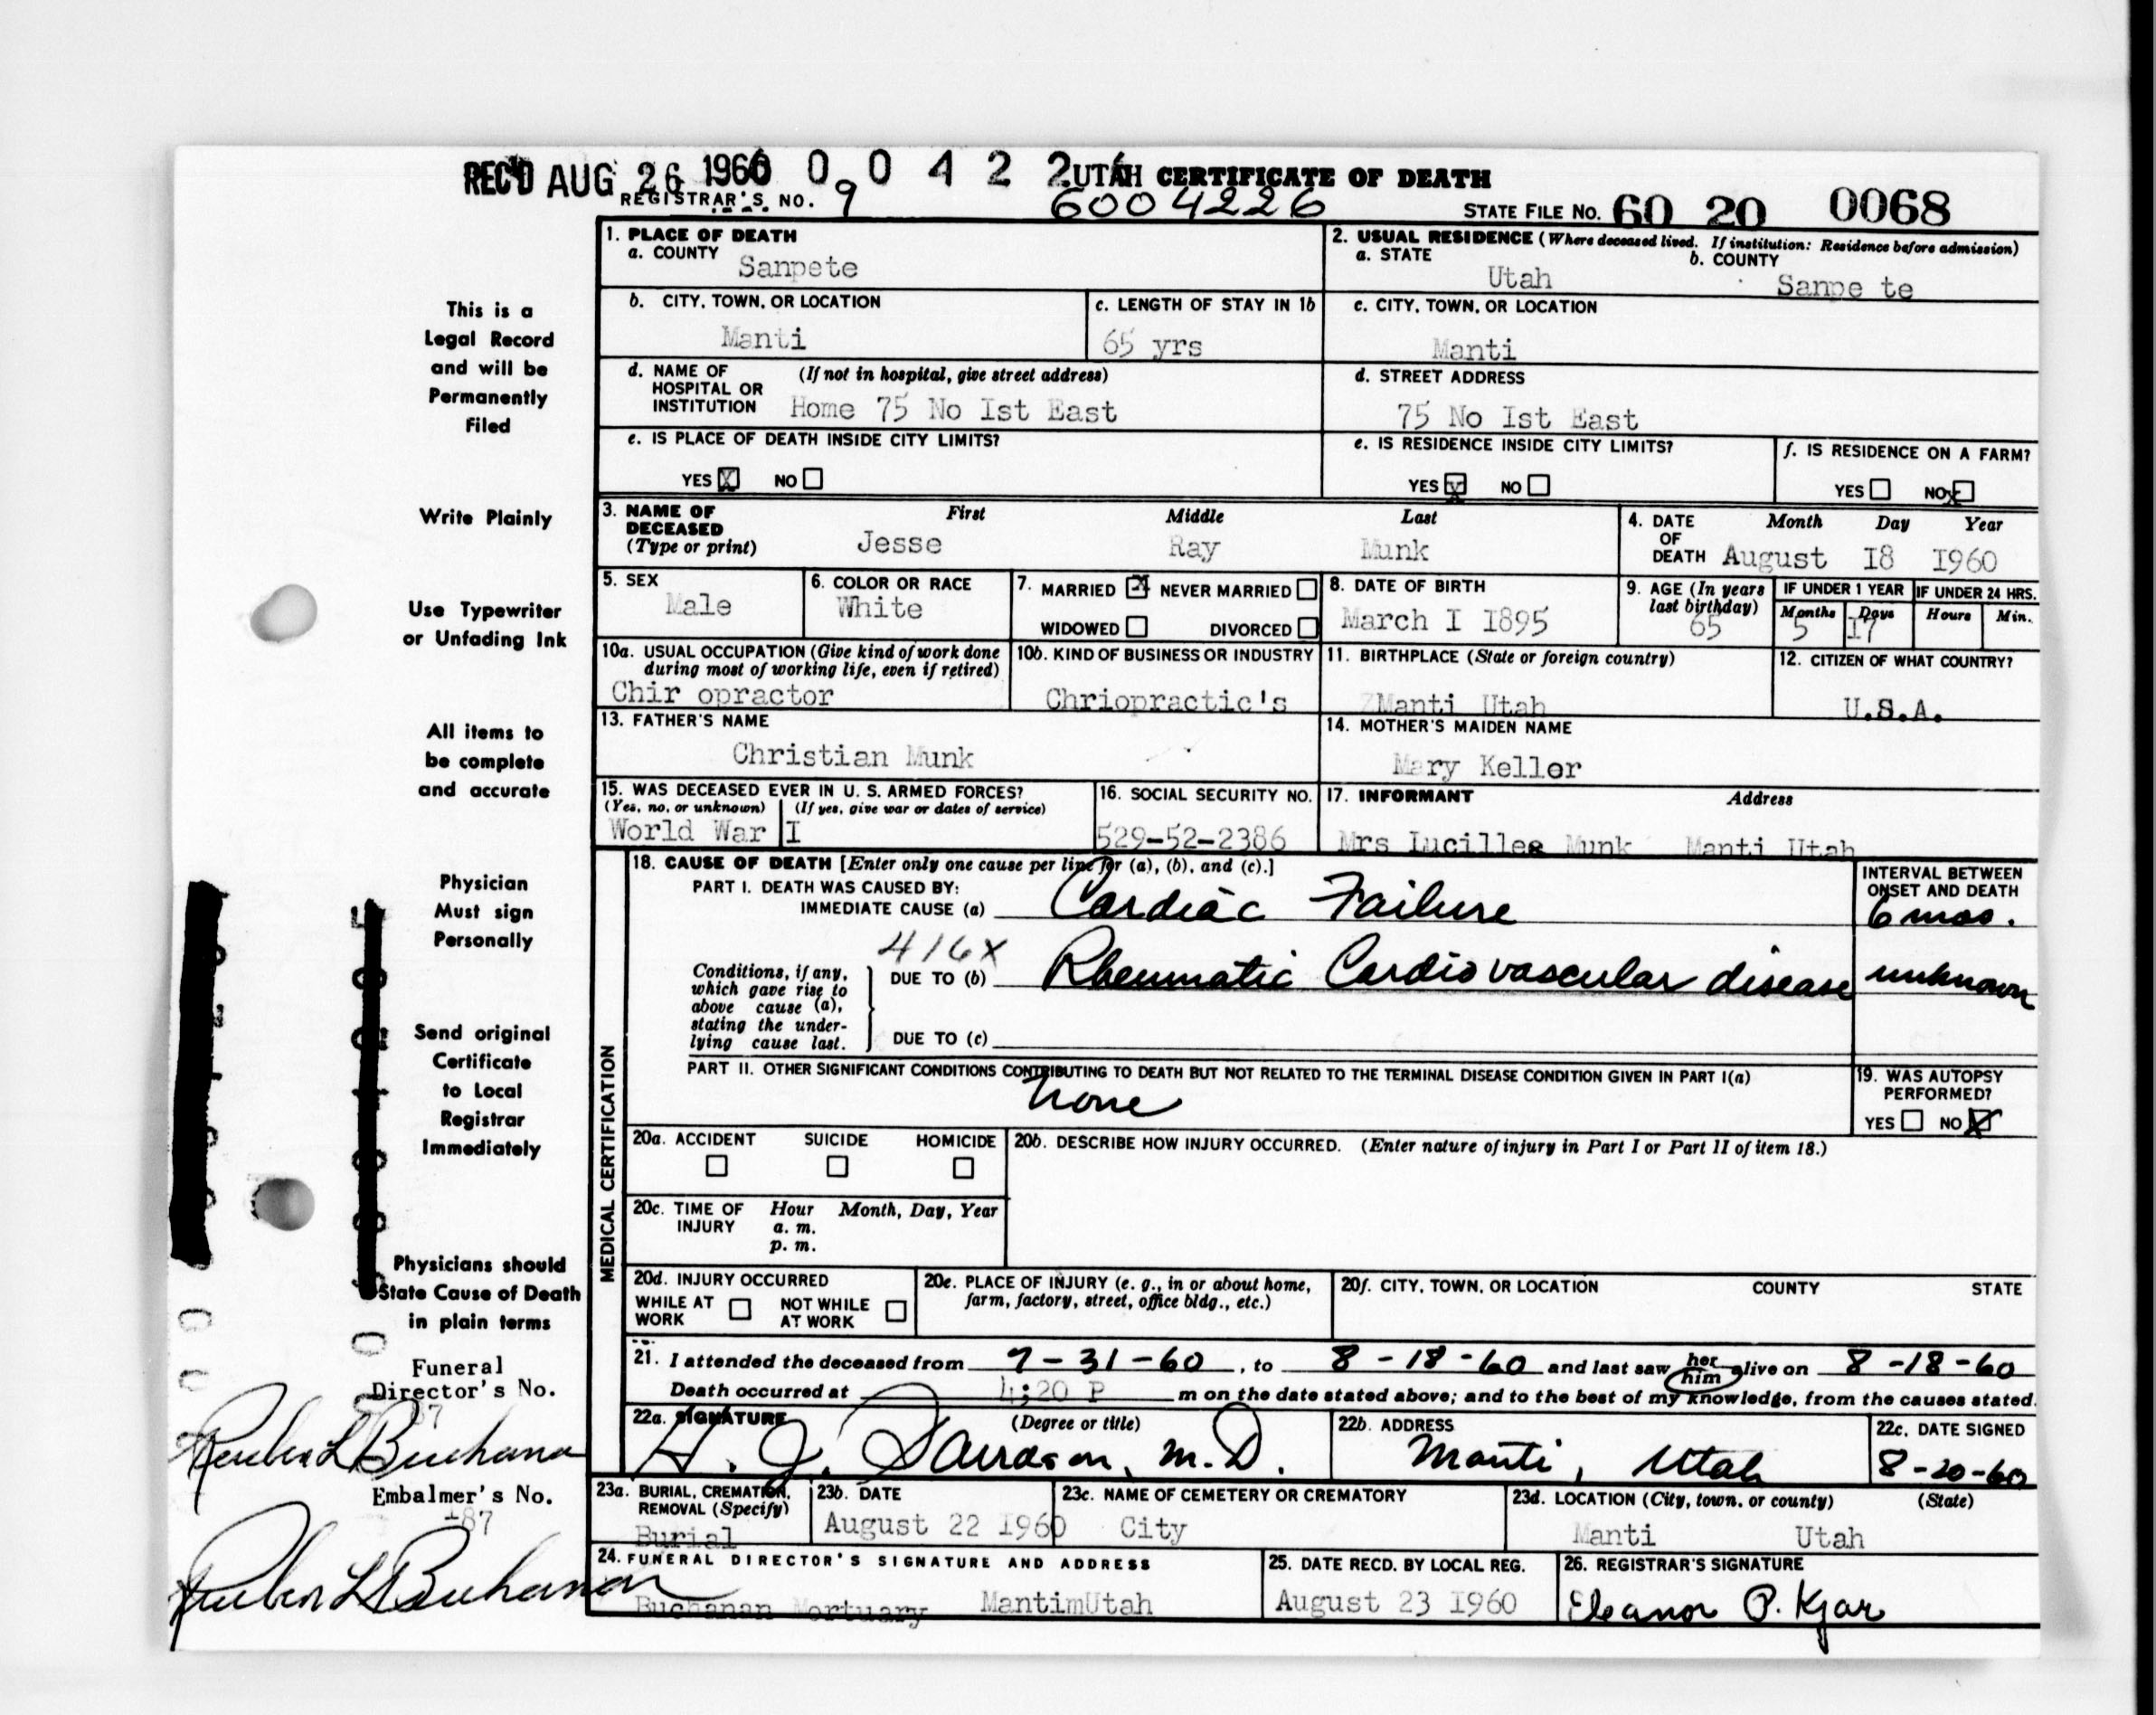 REC'D AUG 26 1960 0 0 4 2 2 6 UTAH CERTIFICATE OF DEATH
REGISTRAR'S NO. 9 6004226 STATE FILE NO. 60 20 0068
1. PLACE OF DEATH
a. COUNTY Sanpete
2. USUAL RESIDENCE (Where deceased lived. If institution: Residence before admission)
a. STATE Utah b. COUNTY Sanpe te
b. CITY, TOWN, OR LOCATION Manti
c. LENGTH OF STAY IN 1b 65 yrs
c. CITY, TOWN, OR LOCATION Manti
d. NAME OF HOSPITAL OR INSTITUTION (If not in hospital, give street address) Home 75 No Ist East
d. STREET ADDRESS 75 No Ist East
e. IS PLACE OF DEATH INSIDE CITY LIMITS?
YES X NO
e. IS RESIDENCE INSIDE CITY LIMITS?
YES X NO
f. IS RESIDENCE ON A FARM?
YES NO X
3. NAME OF DECEASED (Type or print) First Middle Last
Jesse Ray Munk
4. DATE OF DEATH Month Day Year
August I8 I960
5. SEX Male
6. COLOR OR RACE White
7. MARRIED X NEVER MARRIED
WIDOWED DIVORCED
8. DATE OF BIRTH March I I895
9. AGE (In years last birthday) 65
IF UNDER 1 YEAR Months 5 Days I7
IF UNDER 24 HRS. Hours Min.
10a. USUAL OCCUPATION (Give kind of work done during most of working life, even if retired)
Chir opractor
10b. KIND OF BUSINESS OR INDUSTRY
Chriopractic's
11. BIRTHPLACE (State or foreign country)
Manti Utah
12. CITIZEN OF WHAT COUNTRY?
U.S.A.
13. FATHER'S NAME
Christian Munk
14. MOTHER'S MAIDEN NAME
Mary Keller
15. WAS DECEASED EVER IN U. S. ARMED FORCES?
(Yes, no, or unknown) (If yes, give war or dates of service)
World War I
16. SOCIAL SECURITY NO.
529-52-2386
17. INFORMANT Address
Mrs Lucillee Munk Manti Utah
18. CAUSE OF DEATH [Enter only one cause per line for (a), (b), and (c).]
PART I. DEATH WAS CAUSED BY:
IMMEDIATE CAUSE (a) Cardiac Failure
INTERVAL BETWEEN ONSET AND DEATH
6 mos.
416X
Conditions, if any, which gave rise to above cause (a), stating the underlying cause last.
DUE TO (b) Rheumatic Cardiovascular disease unknown
DUE TO (c)
PART II. OTHER SIGNIFICANT CONDITIONS CONTRIBUTING TO DEATH BUT NOT RELATED TO THE TERMINAL DISEASE CONDITION GIVEN IN PART I(a)
None
19. WAS AUTOPSY PERFORMED?
YES NO X
MEDICAL CERTIFICATION
20a. ACCIDENT SUICIDE HOMICIDE
20b. DESCRIBE HOW INJURY OCCURRED. (Enter nature of injury in Part I or Part II of item 18.)
20c. TIME OF INJURY Hour Month, Day, Year
a. m.
p. m.
20d. INJURY OCCURRED
WHILE AT WORK NOT WHILE AT WORK
20e. PLACE OF INJURY (e. g., in or about home, farm, factory, street, office bldg., etc.)
20f. CITY, TOWN, OR LOCATION COUNTY STATE
21. I attended the deceased from 7-31-60, to 8-18-60 and last saw her him alive on 8-18-60
Death occurred at 4;20 P m on the date stated above; and to the best of my knowledge, from the causes stated.
22a. SIGNATURE (Degree or title)
H. J. M.D.
22b. ADDRESS
Manti, Utah
22c. DATE SIGNED
8-20-60
23a. BURIAL, CREMATION, REMOVAL (Specify)
Burial
23b. DATE
August 22 I960
23c. NAME OF CEMETERY OR CREMATORY
City
23d. LOCATION (City, town, or county) (State)
Manti Utah
24. FUNERAL DIRECTOR'S SIGNATURE AND ADDRESS
Buchanan Mortuary MantimUtah
25. DATE RECD. BY LOCAL REG.
August 23 I960
26. REGISTRAR'S SIGNATURE
Eleanor P. Kjar
This is a
Legal Record
and will be
Permanently
Filed
Write Plainly
Use Typewriter
or Unfading Ink
All items to
be complete
and accurate
Physician
Must sign
Personally
Send original
Certificate
to Local
Registrar
Immediately
Physicians should
State Cause of Death
in plain terms
Funeral
Director's No.
Reuben L Buchanan
Embalmer's No.
187
Reuben L Buchanan